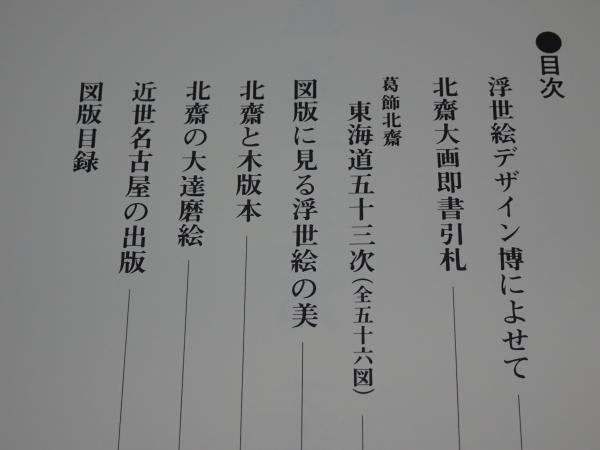 ●目次
浮世絵デザイン博によせて
北齋大画即書引札
葛飾北齋
東海道五十三次(全五十六図)
図版に見る浮世絵の美
北齋と木版本
北齋の大達磨絵
近世名古屋の出版
図版目録